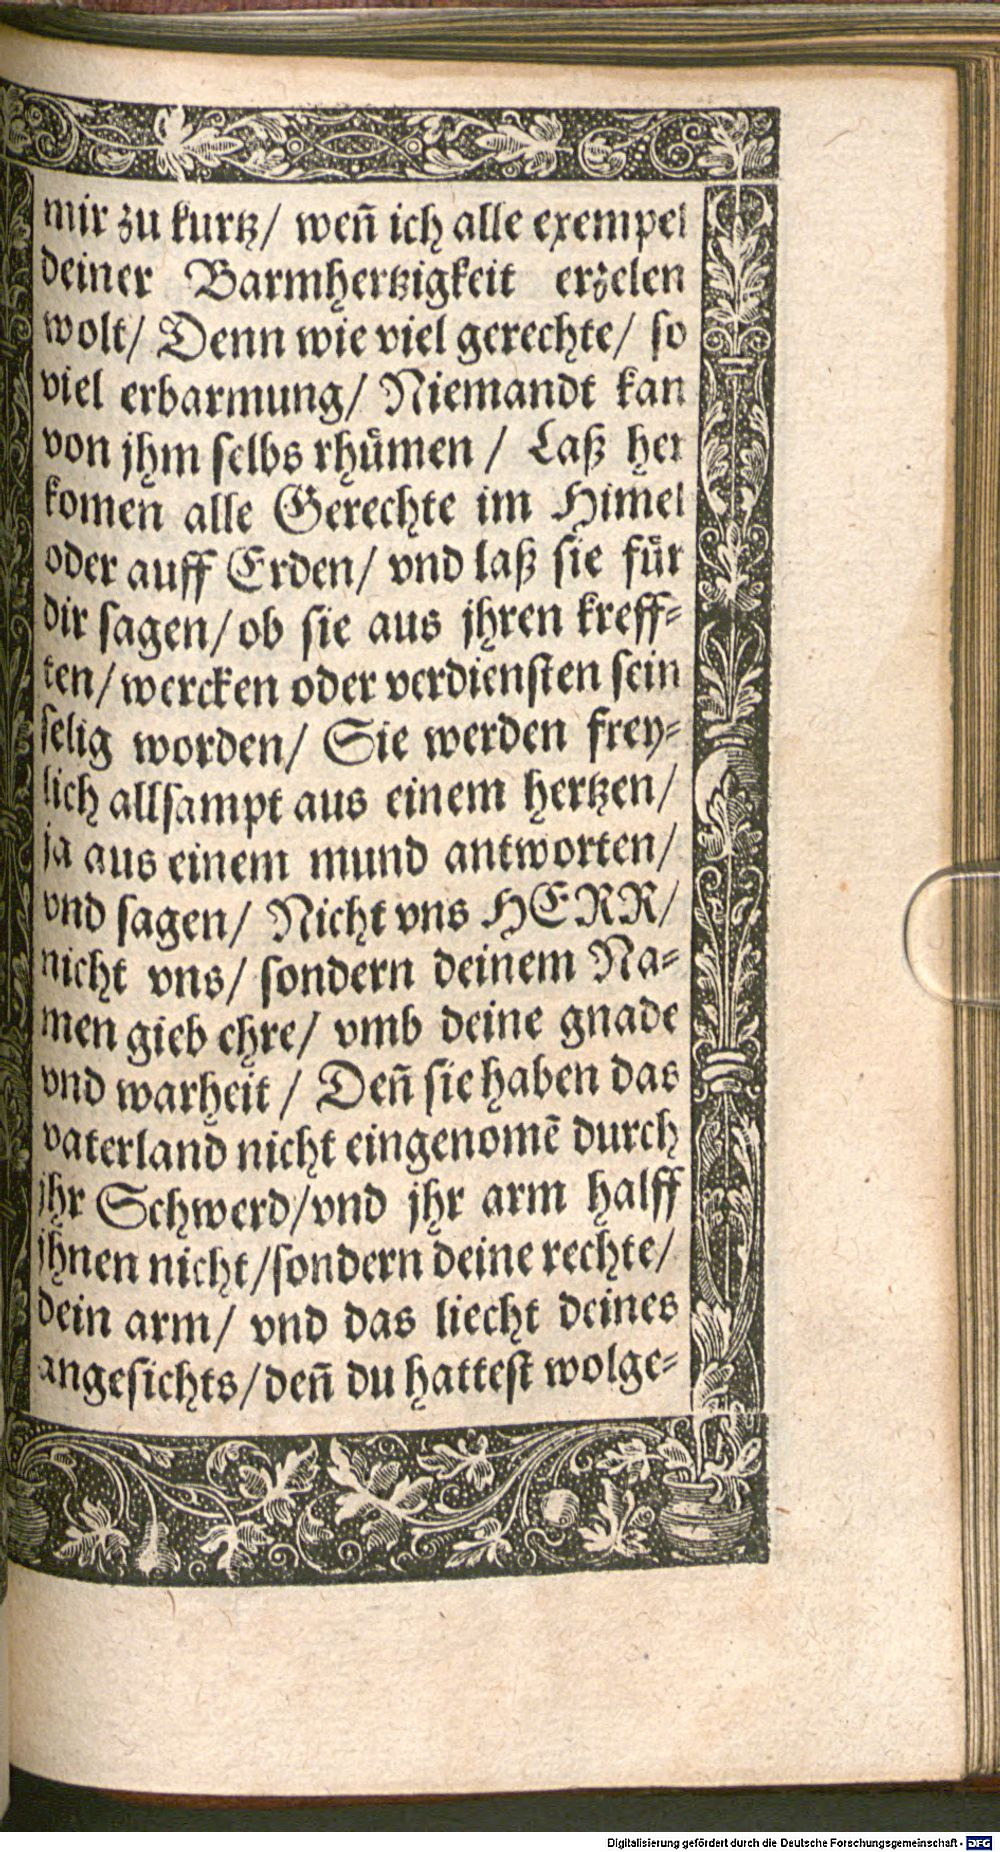 mir zu kurtz/ weñ ich alle exempel
deiner Barmhertzigkeit erzelen
wolt/ Denn wie viel gerechte/ so
viel erbarmung/ Niemandt kan
von jhm selbs rhuͤmen / Laß her
komen alle Gerechte im Himel
oder auff Erden/ vnd laß sie fuͤr
dir sagen/ ob sie aus jhren kreff⸗
ten/ wercken oder verdiensten sein
selig worden/ Sie werden frey⸗
lich allsampt aus einem hertzen/
ja aus einem mund antworten/
vnd sagen/ Nicht vns HERR/
nicht vns/ sondern deinem Na⸗
men gieb ehre/ vmb deine gnade
vnd warheit / Deñ sie haben das
vaterland nicht eingenomẽ durch
jhr Schwerd/ vnd jhr arm halff
jhnen nicht/ sondern deine rechte/
dein arm/ vnd das liecht deines
angesichts/ deñ du hattest wolge⸗
Digitalisierung gefördert durch die Deutsche Forschungsgemeinschaft - DFG